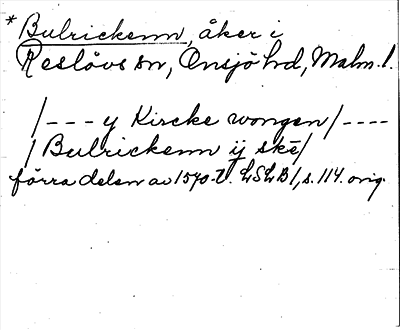 *Bulrickenn, åker i
Reslövs sn, Onsjö hd, Malm. l.
/--- y Kircke wongen/----
/ Bulrickenn ij skē/
förra delen av 1570-t. LSLB1, s. 114. orig.